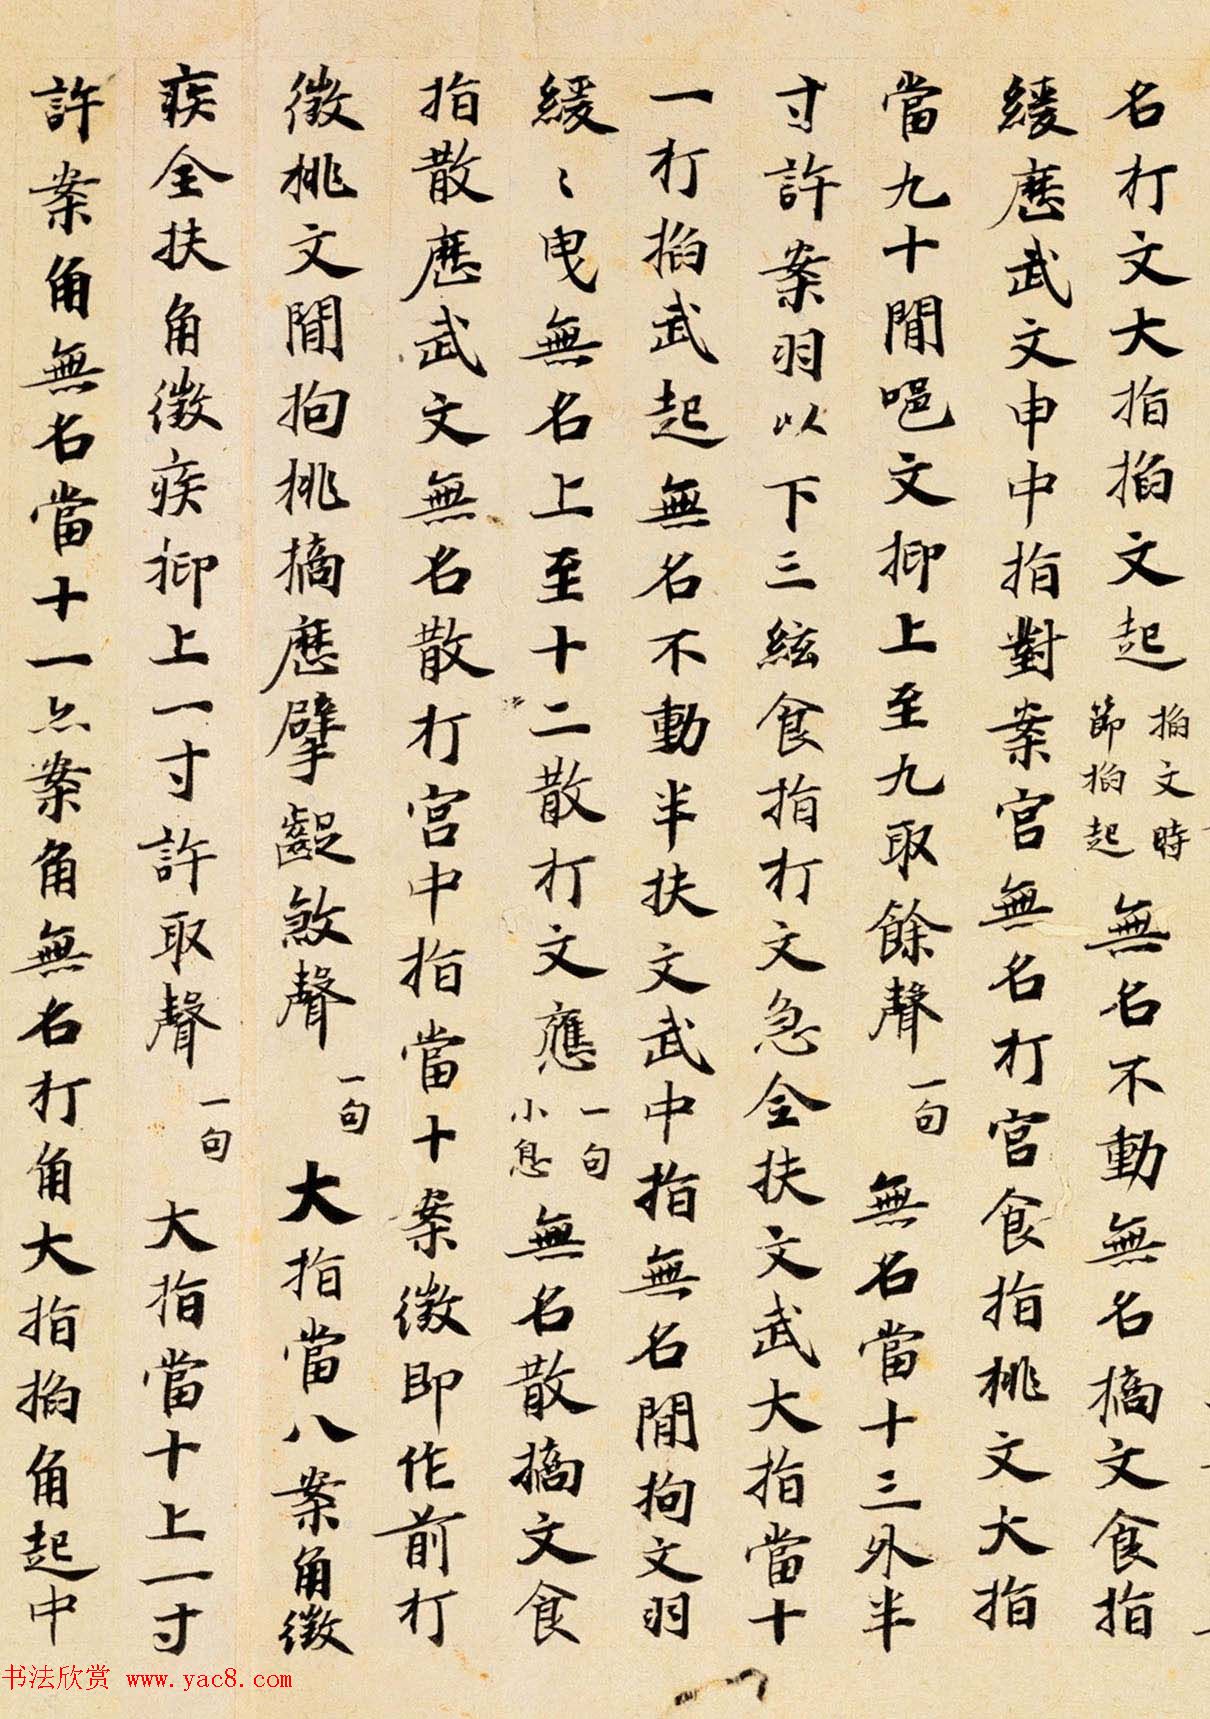 名打文大指掐文起掐文時節掐起無名不動無名摘文食指
緩應武文申中指對案宮無名打宮食指挑文大指
當九十間吅文抑上至九取餘聲一句無名當十三外半
寸許案羽以下三絃食指打文急全扶文武大指當十
一打掐武起無名不動半扶文武中指無名間拘文羽
緩〻曳無名上至十二散打文應一句小息無名散摘文食
指散應武文無名散打宮中指當十案徵即作前打
徵挑文間拘挑摘應擘齪煞聲一句大指當八案角徵
疾全扶角徵疾抑上一寸許取聲一句大指當十上一寸
許案角無名當十一亦案角無名打角大指掐角起中
书法欣赏 www.yac8.com